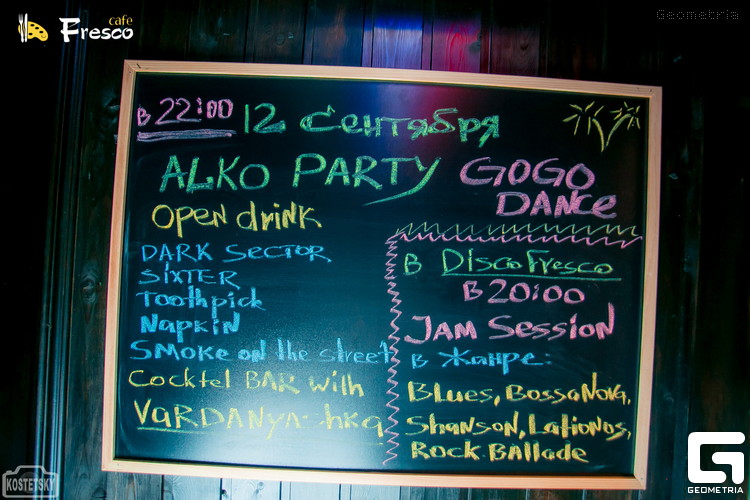 cafe
Fresco
Geometria
в 22:00 12 Сентября
ALKO PARTY GOGO
DANCE
Open drink
DARK SECTOR
SIXTER
Toothpick
Napkin
SMOKE on the street
Cocktel BAR with
VARDANYA-hka
В DiscoFresco
В 20:00
JAM Session
в жанре:
Blues, BossaNova,
Shanson, Lationos,
Rock Ballade
KOSTETSKY
GEOMETRIA